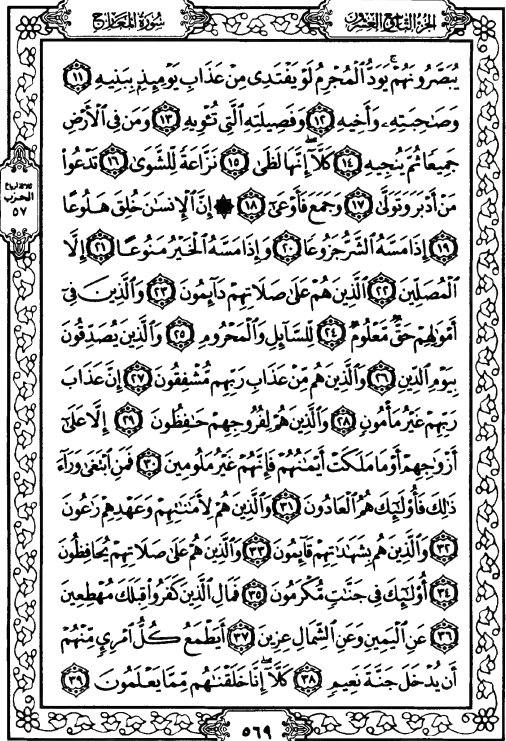 سُورَةُ المَعَارِجِ
الجزءُ التاسع والعشرون
يُبَصَّرُونَهُمْ يَوَدُّ ٱلْمُجْرِمُ لَوْ يَفْتَدِى مِنْ عَذَابِ يَوْمِئِذٍۭ بِبَنِيهِ ١١
وَصَٰحِبَتِهِۦ وَأَخِيهِ ١٢ وَفَصِيلَتِهِ ٱلَّتِى تُـْٔوِيهِ ١٣ وَمَن فِى ٱلْأَرْضِ
جَمِيعًا ثُمَّ يُنجِيهِ ١٤ كَلَّآ إِنَّهَا لَظَىٰ ١٥ نَزَّاعَةً لِّلشَّوَىٰ ١٦ تَدْعُوا۟
مَنْ أَدْبَرَ وَتَوَلَّىٰ ١٧ وَجَمَعَ فَأَوْعَىٰٓ ١٨ ۞ إِنَّ ٱلْإِنسَٰنَ خُلِقَ هَلُوعًا
١٩ إِذَا مَسَّهُ ٱلشَّرُّ جَزُوعًا ٢٠ وَإِذَا مَسَّهُ ٱلْخَيْرُ مَنُوعًا ٢١ إِلَّا
ٱلْمُصَلِّينَ ٢٢ ٱلَّذِينَ هُمْ عَلَىٰ صَلَاتِهِمْ دَآئِمُونَ ٢٣ وَٱلَّذِينَ فِىٓ
أَمْوَٰلِهِمْ حَقٌّ مَّعْلُومٌ ٢٤ لِّلسَّآئِلِ وَٱلْمَحْرُومِ ٢٥ وَٱلَّذِينَ يُصَدِّقُونَ
بِيَوْمِ ٱلدِّينِ ٢٦ وَٱلَّذِينَ هُم مِّنْ عَذَابِ رَبِّهِم مُّشْفِقُونَ ٢٧ إِنَّ عَذَابَ
رَبِّهِمْ غَيْرُ مَأْمُونٍ ٢٨ وَٱلَّذِينَ هُمْ لِفُرُوجِهِمْ حَٰفِظُونَ ٢٩ إِلَّا عَلَىٰٓ
أَزْوَٰجِهِمْ أَوْ مَا مَلَكَتْ أَيْمَٰنُهُمْ فَإِنَّهُمْ غَيْرُ مَلُومِينَ ٣٠ فَمَنِ ٱبْتَغَىٰ وَرَآءَ
ذَٰلِكَ فَأُو۟لَٰٓئِكَ هُمُ ٱلْعَادُونَ ٣١ وَٱلَّذِينَ هُمْ لِأَمَٰنَٰتِهِمْ وَعَهْدِهِمْ رَٰعُونَ
٣٢ وَٱلَّذِينَ هُم بِشَهَٰدَٰتِهِمْ قَآئِمُونَ ٣٣ وَٱلَّذِينَ هُمْ عَلَىٰ صَلَاتِهِمْ يُحَافِظُونَ
٣٤ أُو۟لَٰٓئِكَ فِى جَنَّٰتٍ مُّكْرَمُونَ ٣٥ فَمَالِ ٱلَّذِينَ كَفَرُوا۟ قِبَلَكَ مُهْطِعِينَ
٣٦ عَنِ ٱلْيَمِينِ وَعَنِ ٱلشِّمَالِ عِزِينَ ٣٧ أَيَطْمَعُ كُلُّ ٱمْرِئٍ مِّنْهُمْ
أَن يُدْخَلَ جَنَّةَ نَعِيمٍ ٣٨ كَلَّآ إِنَّا خَلَقْنَٰهُم مِّمَّا يَعْلَمُونَ ٣٩
ثلاثة أرباع
الحزب
٥٧
٥٦٩